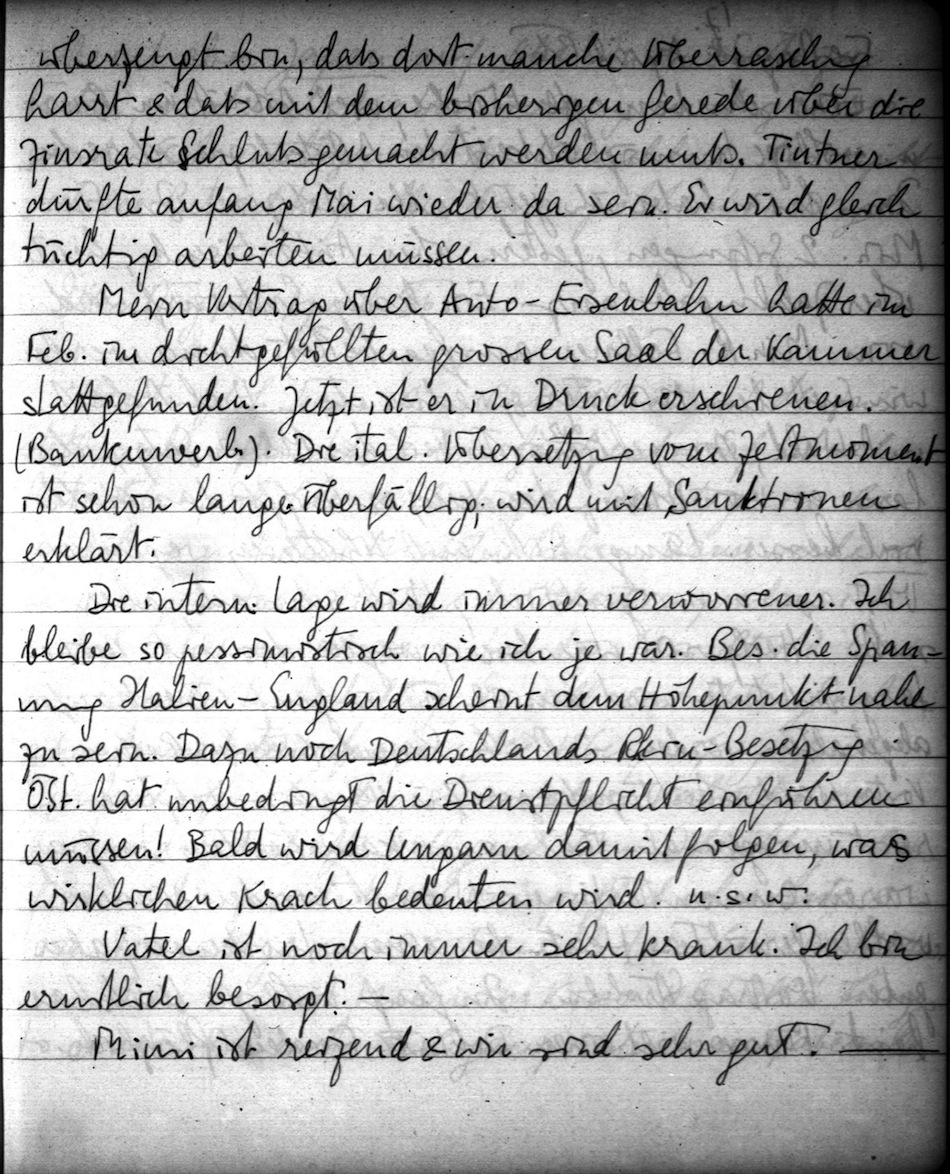 überzeugt bin, dass dort manche Überraschg
harrt & dass mit dem bisherigen Gerede über die
Zinsrate Schluss gemacht werden muss. Tintner
dürfte anfang Mai wieder da sein. Er wird gleich
tüchtig arbeiten müssen.
Mein Vortrag über Auto-Eisenbahn hatte im
Feb. im dichtgefüllten grossen Saal der Kammer
stattgefunden. Jetzt ist er in Druck erschienen.
(Bankenverb.). Die ital. Übersetzg vom Zeitmoment
ist schon lange überfällig; wird mit Sanktionen
erklärt.
Die intern. Lage wird immer verworrener. Ich
bleibe so pessimistisch wie ich je war. Bes. die Span-
nung Italien-England scheint dem Höhepunkt nahe
zu sein. Dazu noch Deutschlands Rhein-Besetzg.
Öst. hat unbedingt die Dienstpflicht einführen
müssen! Bald wird Ungarn damit folgen, was
wirklichen Krach bedeuten wird. u.s.w.
Vatel ist noch immer sehr krank. Ich bin
ernstlich besorgt. —
Mimi ist reizend & wir sind sehr gut. —